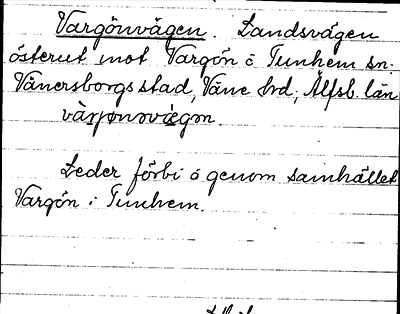 Vargönvägen. Landsvägen
österut mot Vargön i Tunhem sn;
Vänersborgs stad, Väne hrd; Älfsb. län

Leder förbi o genom samhället
Vargön i Tunhem.